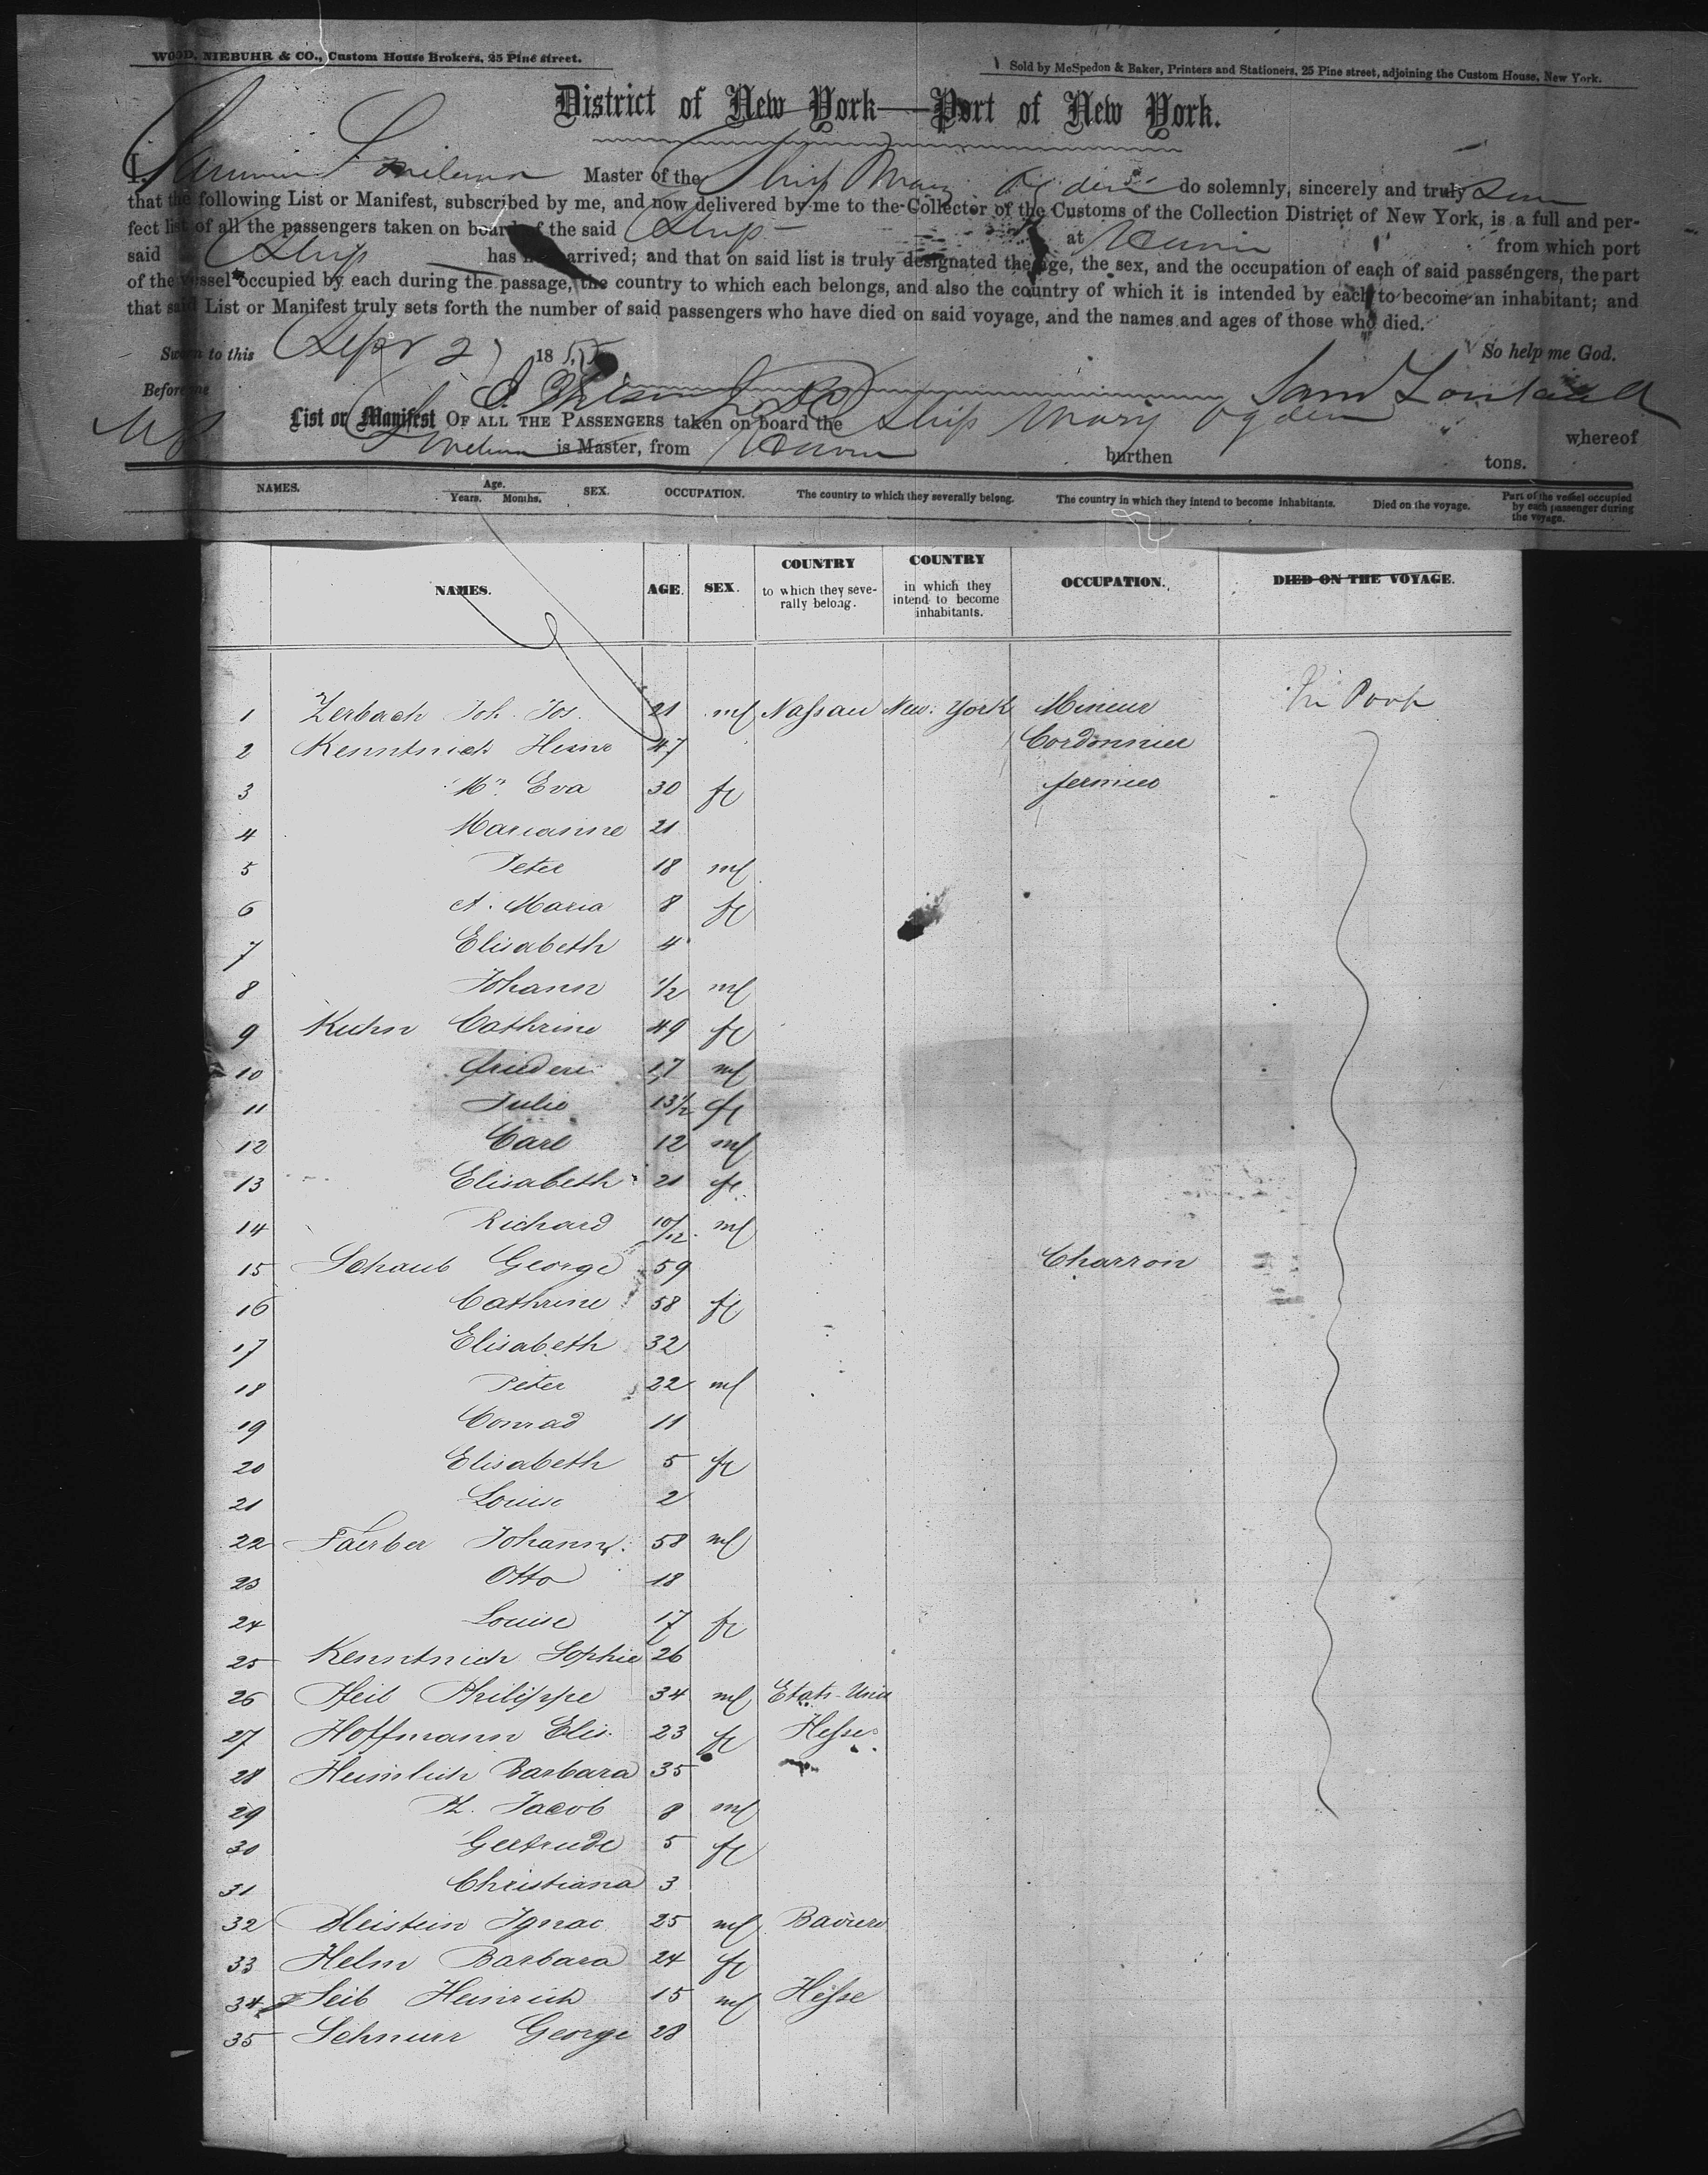 WOOD, NIEBUHR & CO., Custom House Brokers, 25 Pine street.
Sold by McSpedon & Baker, Printers and Stationers, 25 Pine street, adjoining the Custom House, New York.
District of New York—Port of New York.
I, Master of the Ship Mary Ogden do solemnly, sincerely and truly
that the following List or Manifest, subscribed by me, and now delivered by me to the Collector of the Customs of the Collection District of New York, is a full and per-
fect list of all the passengers taken on board of the said Ship at from which port
said Ship has arrived; and that on said list is truly designated the age, the sex, and the occupation of each of said passengers, the part
of the vessel occupied by each during the passage, the country to which each belongs, and also the country of which it is intended by each to become an inhabitant; and
that said List or Manifest truly sets forth the number of said passengers who have died on said voyage, and the names and ages of those who died.
Sworn to this Sept 18 So help me God.
Before me
List or Manifest OF ALL THE PASSENGERS taken on board the Ship Mary Ogden whereof
is Master, from burthen tons.
NAMES. Age. Years. Months. SEX. OCCUPATION. The country to which they severally belong. The country in which they intend to become inhabitants. Died on the voyage. Part of the vessel occupied by each passenger during the voyage.
NAMES. AGE. SEX. COUNTRY to which they seve-rally belong. COUNTRY in which they intend to become inhabitants. OCCUPATION. DIED ON THE VOYAGE.
1 Zerbach Joh. Jos. 21 ml Nassau New York Mineur Poop
2 Kenntnich Heinr 47 Cordonnier
3 Mr. Eva 30 fl fermier
4 Marianne 21
5 Peter 18 ml
6 A. Maria 8 fl
7 Elisabeth 4
8 Johann 1/2 ml
9 Kuhn Cathrine 49 fl
10 17 ml
11 Julie 13 1/2 fl
12 Carl 12 ml
13 Elisabeth 21 fl
14 Richard 10/12 ml
15 Schaub George 59 Charron
16 Cathrine 58 fl
17 Elisabeth 32
18 Peter 22 ml
19 Conrad 11
20 Elisabeth 5 fl
21 Louise 2
22 Faerber Johann 58 ml
23 Otto 18
24 Louise 17 fl
25 Kenntnich Sophie 26
26 Philippe 34 ml Etats-Unis
27 Hoffmann Elis. 23 fl Hesse
28 Heimlich Barbara 35
29 Jacob 8 ml
30 Gertrude 5 fl
31 Christiana 3
32 Ignac 25 ml Baviere
33 Helm Barbara 24 fl
34 Seib Heinrich 15 ml Hesse
35 Schnurr George 28